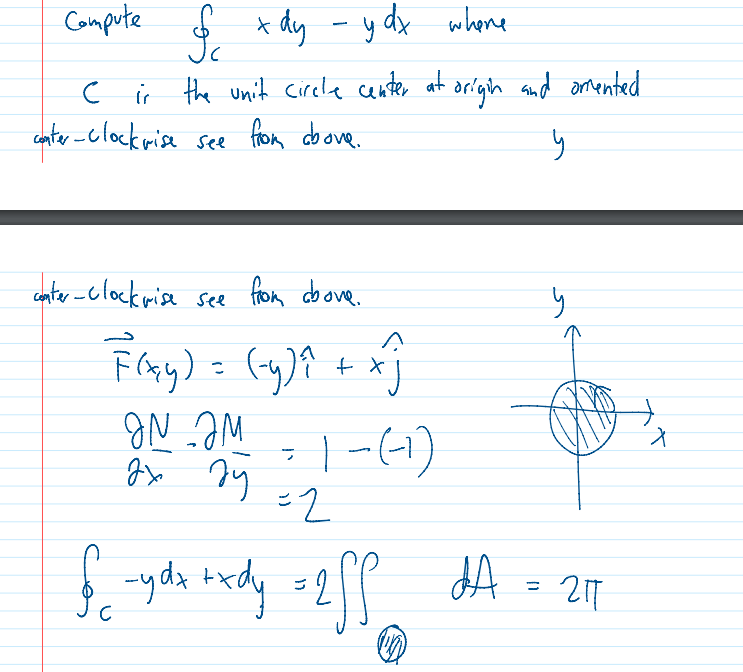 Compute ∮_C x dy - y dx where
C is the unit circle center at origin and oriented
conter-clockwise see from above.
y
conter-clockwise see from above.
y
F⃗(x,y) = (-y)î + xĵ
x
∂N/∂x - ∂M/∂y = 1 - (-1)
= 2
∮_C -ydx + xdy = 2∬ dA = 2π